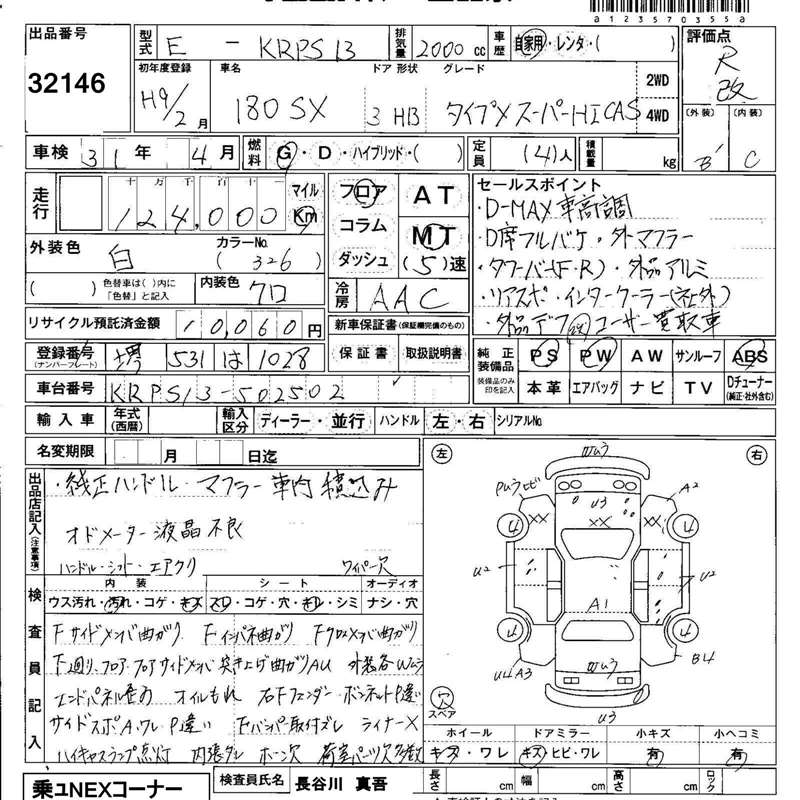 a 1 2 3 5 7 0 3 5 5 a
出品番号 型式 E - KRPS13 排気量 2000 cc 車歴 自家用・レンタ・( ) 評価点
32146 R 改
初年度登録 車名 ドア 形状 グレード 2WD
H9/2 月 180SX 3 HB タイプX スーパーHICAS 4WD
(外装) (内装)
B' C
車検 31 年 4 月 燃料 G・D・ハイブリッド・( ) 定員 (4)人 積載量 kg
走行 十万 千 百 十 一 マイル Km
124,000
フロア コラム ダッシュ AT MT (5)速
外装色 白 カラーNo. (326)
( ) 色替車は( )内に「色替」と記入 内装色 クロ
冷房 AAC
セールスポイント
・D-MAX車高調
・D席フルバケ・外マフラー
・タワーバー(F・R)・外品アルミ
・リアスポ・インタークーラー(社外)
・外品デフ 改 ユーザー買取車
リサイクル預託済金額 10,060 円 新車保証書(保証欄完備のもの)
保証書 取扱説明書
登録番号(ナンバープレート) 堺 531 は 1028
純正装備品 PS PW AW サンルーフ ABS
装備品のみ印を記入 本革 エアバッグ ナビ TV Dチューナー(純正・社外含む)
車台番号 KRPS13-502502
輸入車 年式(西暦) 輸入区分 ディーラー・並行 ハンドル 左・右 シリアルNo.
名変期限 月 日迄
出品店記入(注意事項)
・純正ハンドル・マフラー車内積込み
オドメーター液晶不良
ハンドル・シフト・エアクリ ワイパー欠
検査員記入
内装 シート オーディオ
ウス汚れ・汚れ・コゲ・キズ スレ・コゲ・穴・キレ・シミ ナシ・穴
Fサイドメンバ曲がり Fインパネ曲がり Fクロスメンバ曲がり
F廻り、フロア、フロアサイドメンバ突き上げ曲がりAU 外装各Wムラ
エンドパネル歪み オイルもれ 右Fフェンダー・ボンネットP違い
サイドスポA,ワレ P違い Fバンパー取付ズレ ライナーX
ハイキャスランプ点灯 内張ダレ ホーン欠 荷室パーツ欠多数
左 右
ワレU3
PUワレサビ U3 A2
XX XX XX
4 4
U2 U2
A1
4 4
U4A3 ワレU3 B4
U3
穴 スペア
ホイール ドアミラー 小キズ 小ヘコミ
キズ・ワレ キズ・ヒビ・ワレ 有 有
乗ュNEXコーナー 検査員氏名 長谷川 真吾 長さ cm 幅 cm 高さ cm ロック